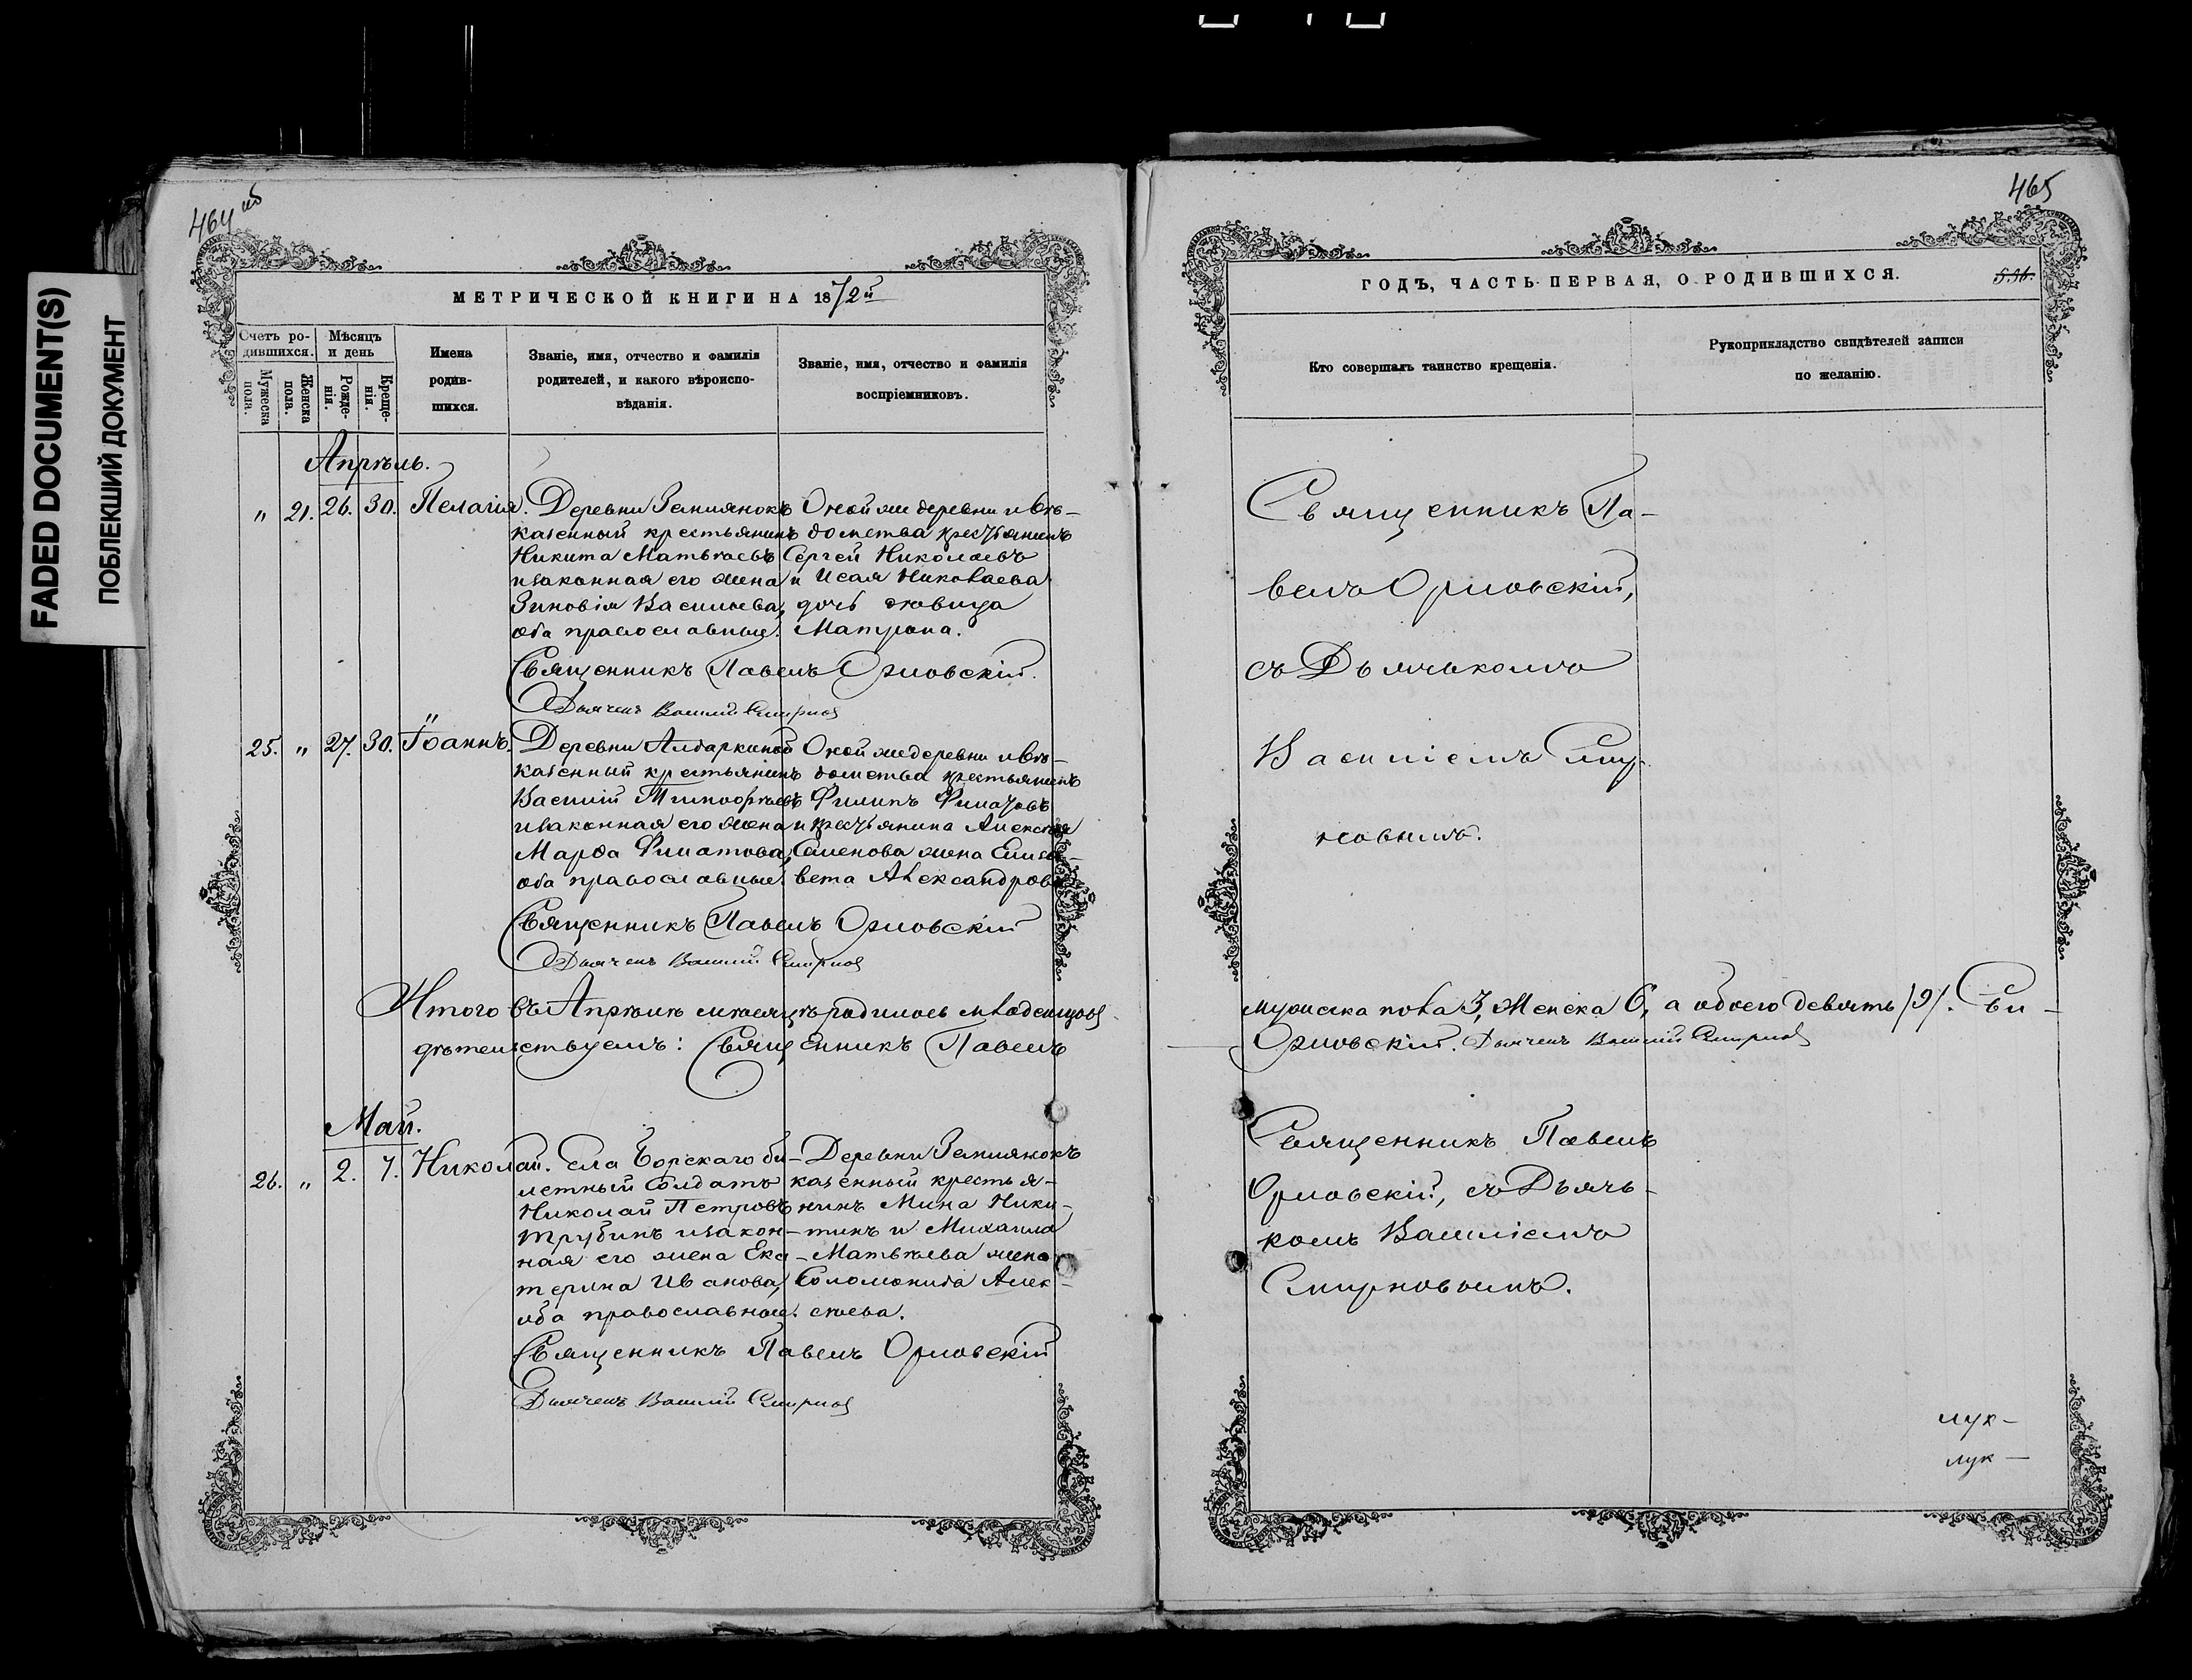 FADED DOCUMENT(S)
ПОБЛЕКШИЙ ДОКУМЕНТ
464 об
МЕТРИЧЕСКОЙ КНИГИ НА 1872й
Счетъ родившихся.
Мужеска пола.
Женска пола.
Мѣсяцъ и день
Рожденія.
Крещенія.
Имена
родив-
шихся.
Званіе, имя, отчество и фамилія
родителей, и какого вѣроиспо-
вѣданія.
Званіе, имя, отчество и фамилія
воспріемниковъ.
Апрѣль.
" 21. 26. 30. Пелагія.
Деревни Землянокъ
казенный крестьянинъ
Никита Матвѣевъ
и законная его жена
Зиновія Васильева,
оба православные.
Оной же деревни и вѣ-
домства крестьянинъ
Сергей Николаевъ
и Исая Николаева
дочь девица
Матрона.
Священникъ Павелъ Орловскій.
Дьячекъ Василій Смирновъ
25. " 27. 30. Іоаннъ.
Деревни Алдаркиной
казенный крестьянинъ
Василій Тимофѣевъ
и законная его жена
Марфа Филатова,
оба православные.
Оной же деревни и вѣ-
домства крестьянинъ
Филипъ Филатовъ
и крестьянина Алексѣя
Семенова жена Елиза-
вета Александрова
Священникъ Павелъ Орловскій
Дьячекъ Василій Смирновъ
Итого въ Апрѣлѣ мѣсяцѣ родилось младенцовъ
дѣтельствуемъ: Священникъ Павелъ
Май.
26. " 2. 7. Николай.
Села Борскаго би-
летный Солдатъ
Николай Петровъ
Трубинъ и закон-
ная его жена Ека-
терина Иванова,
оба православные.
Деревни Землянокъ
казенный крестья-
нинъ Мина Ники-
тинъ и Михаила
Матвѣева жена
Соломонида Алек-
сѣева.
Священникъ Павелъ Орловскій
Дьячекъ Василій Смирновъ
465
ГОДЪ, ЧАСТЬ ПЕРВАЯ, О РОДИВШИХСЯ.
Кто совершалъ таинство крещенія.
Рукоприкладство свидѣтелей записи
по желанію.
Священникъ Па-
велъ Орловскій,
съ Дьячькомъ
Василіемъ Смир-
новымъ.
мужеска пола 3, Женска 6, а обоего девять /9/. Сви-
Орловскій. Дьячекъ Василій Смирновъ
Священникъ Павелъ
Орловскій, съ Дьячь-
комъ Василіемъ
Смирновымъ.